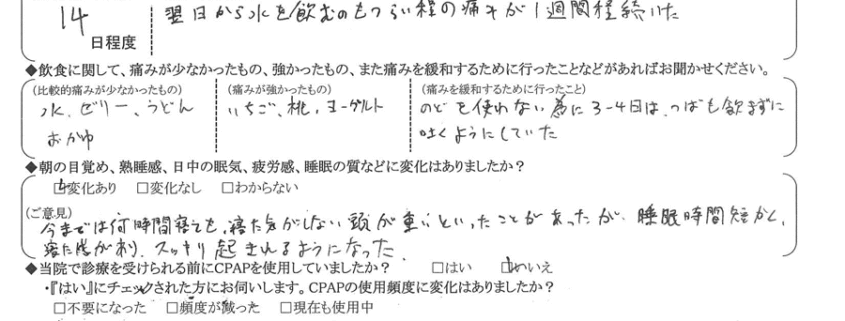 14
日程度
翌日から水を飲むのもつらい程の痛みが1週間程続いた
◆飲食に関して、痛みが少なかったもの、強かったもの、また痛みを緩和するために行ったことなどがあればお聞かせください。
(比較的痛みが少なかったもの) (痛みが強かったもの) (痛みを緩和するために行ったこと)
水、ゼリー、うどん いちご、桃、ヨーグルト のどを使わない為に3-4日は、つばも飲まずに
おかゆ 吐くようにしていた
◆朝の目覚め、熟睡感、日中の眠気、疲労感、睡眠の質などに変化はありましたか?
☑変化あり □変化なし □わからない
(ご意見)
今までは何時間寝ても、寝た気がしない頭が重いといったことがあったが、睡眠時間短かく、
寝た感があり、スッキリ起きれるようになった。
◆当院で診療を受けられる前にCPAPを使用していましたか? □はい ☑いいえ
・『はい』にチェックされた方にお伺いします。CPAPの使用頻度に変化はありましたか?
□不要になった □頻度が減った □現在も使用中